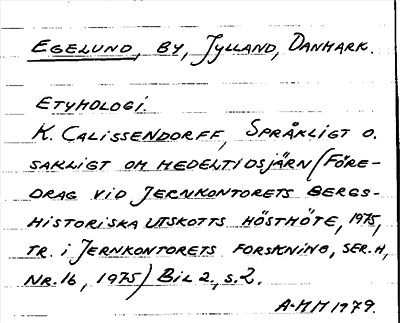 EGELUND, BY, JYLLAND, DANMARK.
ETYMOLOGI.
K. CALISSENDORFF, SPRÅKLIGT O.
SAKLIGT OM MEDELTIDSJÄRN (FÖRE-
DRAG VID JERNKONTORETS BERGS-
HISTORISKA UTSKOTTS HÖSTMÖTE, 1975,
TR. i JERNKONTORETS FORSKNING, SER. H,
NR. 16, 1975) BIL 2., S. 2.
A-MM 1979.